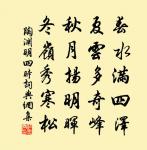 春水滿四澤
夏雲多奇峰
秋月揚明暉
冬嶺秀寒松
陶淵明四時詞典網集